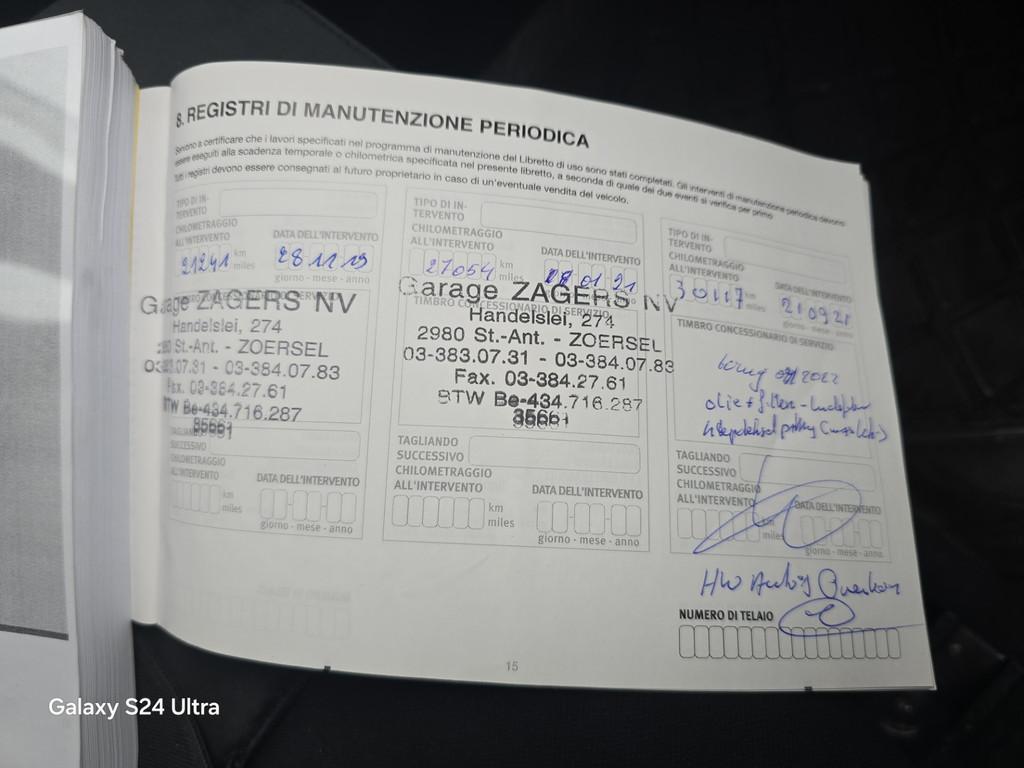 8. REGISTRI DI MANUTENZIONE PERIODICA
Servono a certificare che i lavori specificati nel programma di manutenzione del Libretto di uso sono stati completati. Gli interventi di manutenzione periodica devono
essere eseguiti alla scadenza temporale o chilometrica specificata nel presente libretto, a seconda di quale dei due eventi si verifica per primo.
Tutti i registri devono essere consegnati al futuro proprietario in caso di un'eventuale vendita del veicolo.
TIPO DI IN-
TERVENTO
CHILOMETRAGGIO
ALL'INTERVENTO
DATA DELL'INTERVENTO
21241 km
miles
28 11 19
giorno - mese - anno
Garage ZAGERS NV
Handelslei, 274
2980 St.-Ant. - ZOERSEL
03-383.07.31 - 03-384.07.83
Fax. 03-384.27.61
BTW Be-434.716.287
35661
TAGLIANDO
SUCCESSIVO
CHILOMETRAGGIO
ALL'INTERVENTO
km
miles
DATA DELL'INTERVENTO
giorno - mese - anno
TIPO DI IN-
TERVENTO
CHILOMETRAGGIO
ALL'INTERVENTO
DATA DELL'INTERVENTO
27054 km
miles
01 21
TIMBRO CONCESSIONARIO DI SERVIZIO
Garage ZAGERS NV
Handelslei, 274
2980 St.-Ant. - ZOERSEL
03-383.07.31 - 03-384.07.83
Fax. 03-384.27.61
BTW Be-434.716.287
35661
TAGLIANDO
SUCCESSIVO
CHILOMETRAGGIO
ALL'INTERVENTO
km
miles
DATA DELL'INTERVENTO
giorno - mese - anno
TIPO DI IN-
TERVENTO
CHILOMETRAGGIO
ALL'INTERVENTO
DATA DELL'INTERVENTO
30117 km
miles
21 09 21
giorno - mese - anno
TIMBRO CONCESSIONARIO DI SERVIZIO
2022
olie +
TAGLIANDO
SUCCESSIVO
CHILOMETRAGGIO
ALL'INTERVENTO
km
miles
DATA DELL'INTERVENTO
giorno - mese - anno
HW
NUMERO DI TELAIO
15
Galaxy S24 Ultra